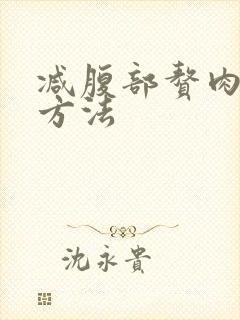 减腹部赘肉
方法
沈永貴